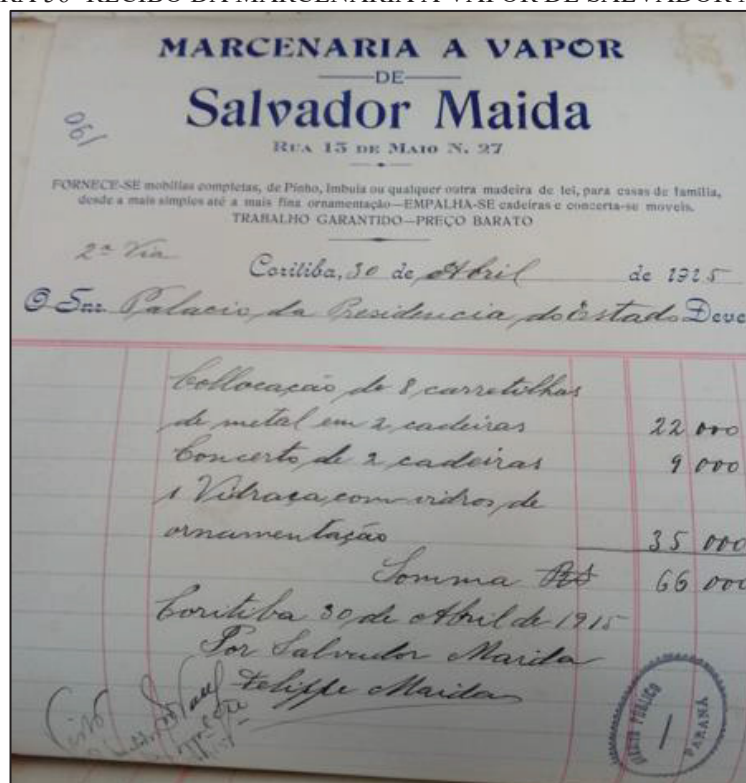 RA 36- RECIBO DA MARCENARIA A VAPOR DE SALVADOR
MARCENARIA A VAPOR
DE
Salvador Maida
RUA 15 DE MAIO N. 27
190
FORNECE-SE mobilias completas, de Pinho, Imbuia ou qualquer outra madeira de lei, para casas de familia,
desde a mais simples até a mais fina ornamentação—EMPALHA-SE cadeiras e concerta-se moveis.
TRABALHO GARANTIDO—PREÇO BARATO
2ª Via
Coritiba, 30 de Abril de 1915
O Snr. Palacio da Presidencia do Estado Deve
Collocação de 8 carretilhas
de metal em 2 cadeiras 22 000
Concerto de 2 cadeiras 9 000
1 Vidraça com vidros de
ornamentação 35 000
Somma R$ 66 000
Coritiba 30 de Abril de 1915
Por Salvador Maida
Felippe Maida
Visto
PUBLICO
PARANÁ